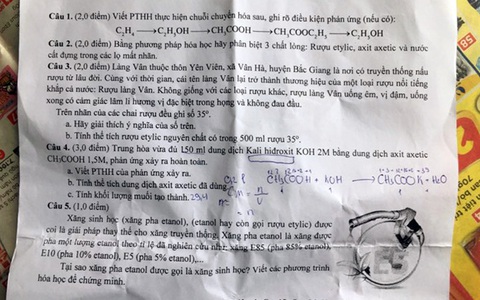 Câu 1. (2,0 điểm) Viết PTHH thực hiện chuỗi chuyển hóa sau, ghi rõ điều kiện phản ứng (nếu có):
C₂H₄ ⟶ C₂H₅OH ⟶ CH₃COOH ⟶ CH₃COOC₂H₅ ⟶ C₂H₅OH
Câu 2. (2,0 điểm) Bằng phương pháp hóa học hãy phân biệt 3 chất lỏng: Rượu etylic, axit axetic và nước
cất đựng trong các lọ mất nhãn.
Câu 3. (2,0 điểm) Làng Vân thuộc thôn Yên Viên, xã Vân Hà, huyện Bắc Giang là nơi có truyền thống nấu
rượu từ lâu đời. Cùng với thời gian, cái tên làng Vân lại trở thành thương hiệu của một loại rượu nổi tiếng
khắp cả nước: Rượu làng Vân. Không giống với các loại rượu khác, rượu làng Vân uống êm, vị đậm, uống
xong có cảm giác lâm li hương vị đặc biệt trong họng và không đau đầu.
Trên nhãn của các chai rượu đều ghi số 35°.
a. Hãy giải thích ý nghĩa của số trên.
b. Tính thể tích rượu etylic nguyên chất có trong 500 ml rượu 35°.
Câu 4. (3,0 điểm) Trung hòa vừa đủ 150 ml dung dịch Kali hiđroxit KOH 2M bằng dung dịch axit axetic
CH₃COOH 1,5M, phản ứng xảy ra hoàn toàn.
a. Viết PTHH của phản ứng xảy ra.
CH₃COOH + KOH ⟶ CH₃COOK + H₂O
b. Tính thể tích dung dịch axit axetic đã dùng.
c. Tính khối lượng muối tạo thành. 29,4
Câu 5. (1,0 điểm)
Xăng sinh học (xăng pha etanol), (etanol hay còn gọi rượu etylic) được
coi là giải pháp thay thế cho xăng truyền thống. Xăng pha etanol là xăng được
pha một lượng etanol theo tỉ lệ đã nghiên cứu như: xăng E85 (pha 85% etanol),
E10 (pha 10% etanol), E5 (pha 5% etanol),...
Tại sao xăng pha etanol được gọi là xăng sinh học? Viết các phương trình
hóa học để chứng minh.